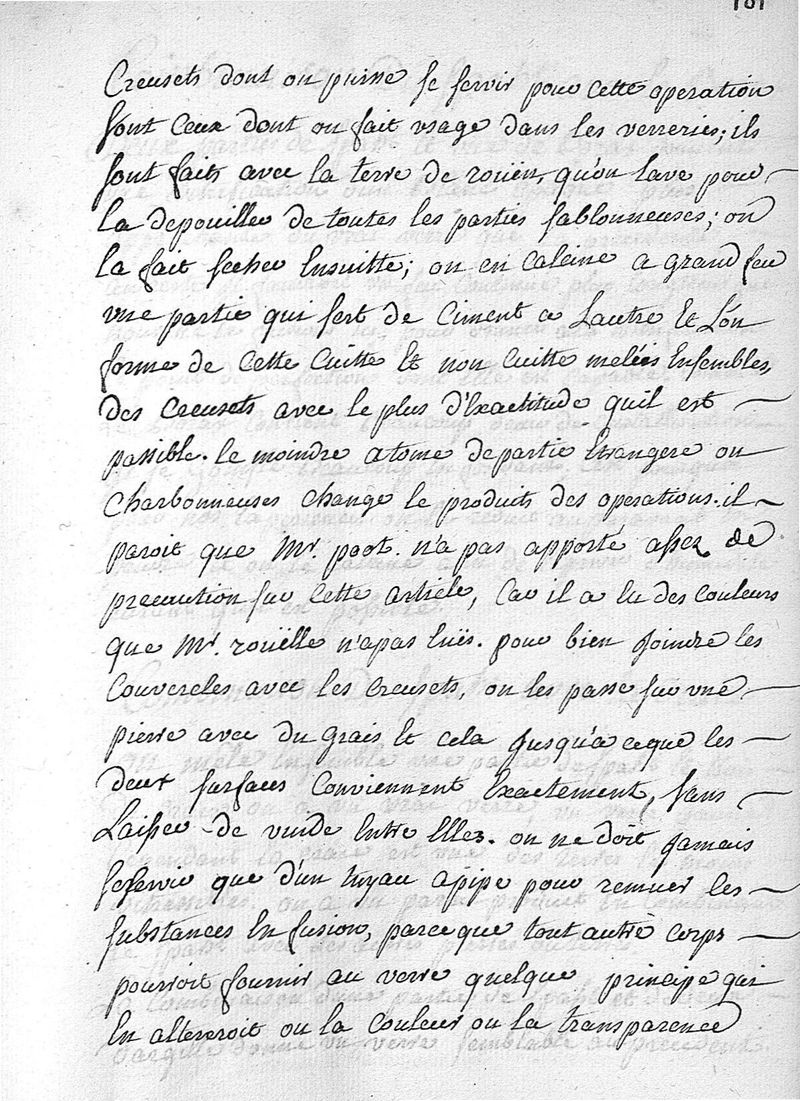 Creusets dont on puisse se servir pour cette operation
sont ceux dont on fait usage dans les verreries; ils
sont faits avec la terre de rouën, qu'on lave pour
la depouiller de toutes les parties sablonneuses; on
la fait secher Ensuitte; on en calcine a grand feu
une partie qui sert de Ciment a Lautre Et L'on
forme de cette Cuitte Et non Cuitte melées Ensembles,
des Creusets avec le plus d'Exactitude quil est
possible. le moindre atome de partie Etrangere ou
Charbonneuses change le produits des operations. il
paroit que Mr. poot. n'a pas apporte assez de
precaution sur Cette article, Car il a Eu des Couleurs
que Mr. rouëlle n'a pas Euës. pour bien joindre les
Couvercles avec les Creusets, on les passe sur une
pierre avec du grais Et cela jusqu'a ceque les
deux surfaces Conviennent Exactement, sans
Laisser de vuide Entre Elles. on ne doit jamais
se servir que d'un tuyau a pipe pour remuer les
substances En fusion, parce que tout autre corps
pourroit fournir au verre quelque principe qui
En altereroit ou la Couleur ou la transparence